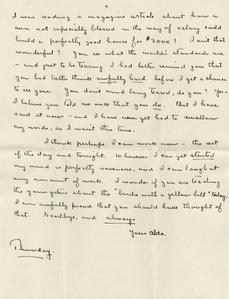 I was reading a magazine article about how a
man not especially blessed in the way of salary could
build a perfectly good house for $3000! Isn't that
wonderful? you see what the world's standards are
- and just to be teasing I had better remind you that
you had better think awfully hard before I get a chance
to see you. You don't mind being teased, do you? You
I believe you told me once that you do. But I have
said it now - and I have never yet had to swallow
my words, so I won't this time.
I think perhaps I can work now - the rest
of the day and tonight. Whenever I can get started
my mind is perfectly ravenous, and I can laugh at
any amount of work. I wonder if you are teaching
the youngsters about the "birds with a yellow bill" today.
I am awfully proud that you should have thought of
that. Goodbye, and always
Yours
Thursday.